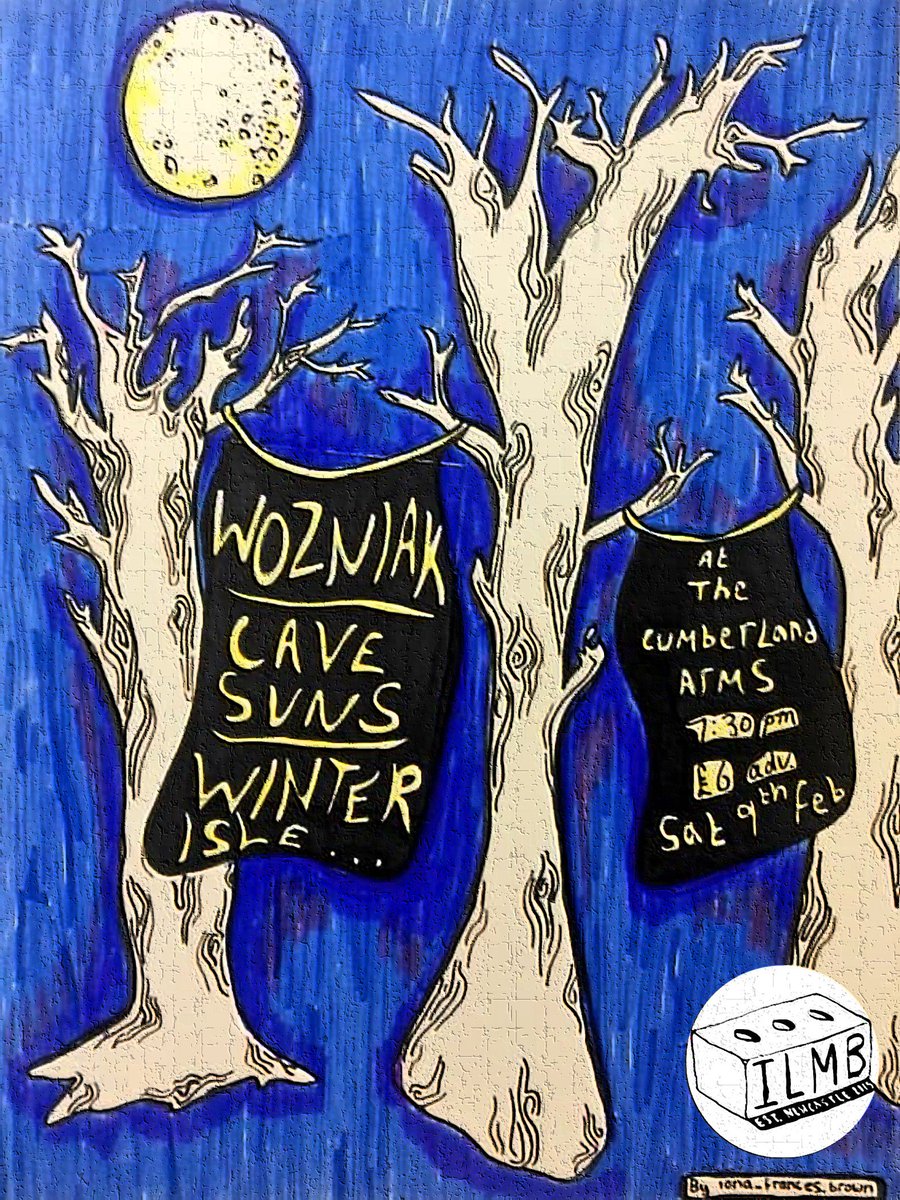 WOZNIAK
CAVE
SUNS
WINTER
ISLE...
At
The
CUMBERLAND
ARMS
7:30 pm
£6 adv.
Sat 9th Feb
ILMB
EST. NEWCASTLE 2015
By iona_frances_brown